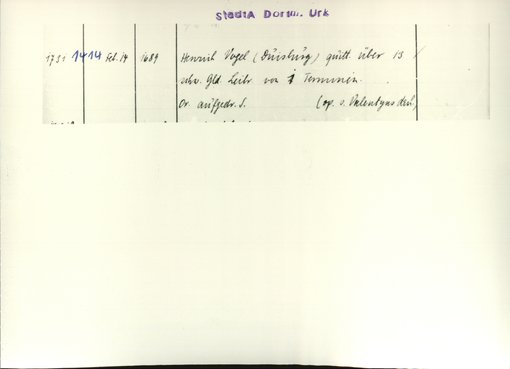 StadtA Dortm. Urk
1731 1414 Feb. 14 1689 Henrich Vogel (Duisburg) quitt. über 15
schw. Gld. Leibr von 1 Terminin.
Or. aufgedr. S. (op. s. Valentyns